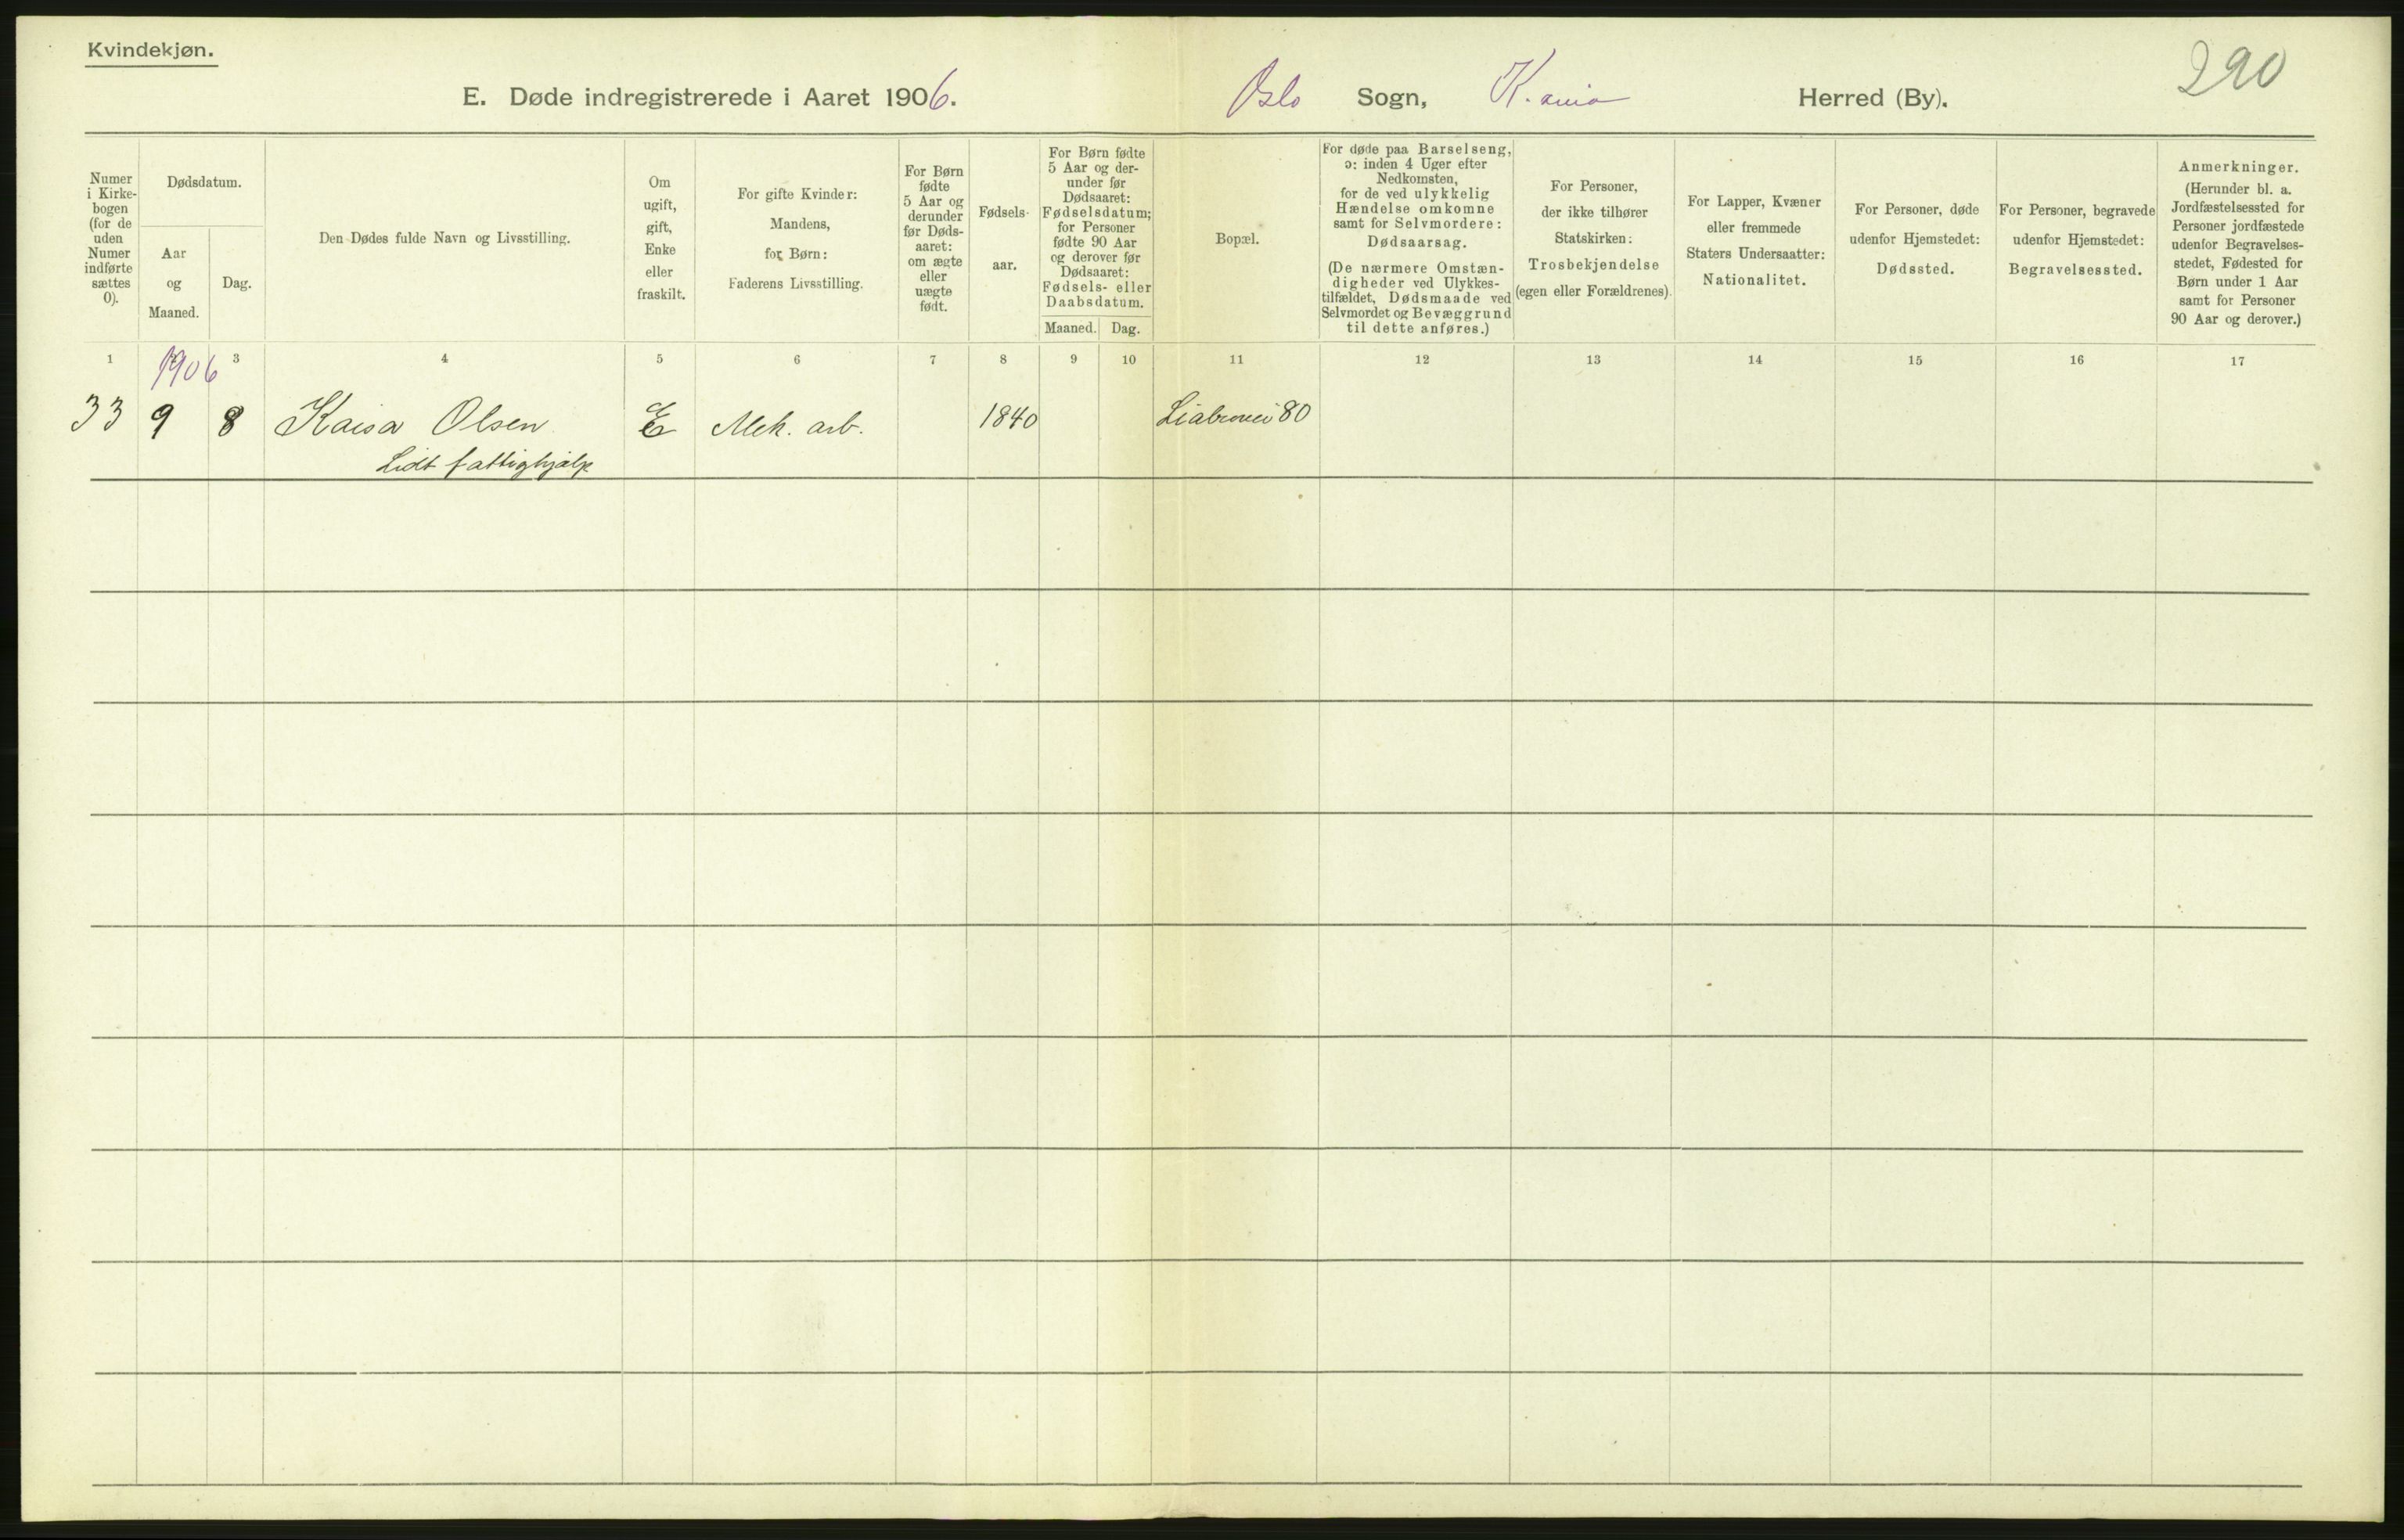 Kvindekjøn.
290
E. Døde indregistrerede i Aaret 1906. Oslo Sogn, K.ania Herred (By).
Numer
i Kirke-
bogen
(for de
uden
Numer
indførte
sættes
0).
Dødsdatum.
Aar
og
Maaned.
Dag.
Den Dødes fulde Navn og Livsstilling.
Om
ugift,
gift,
Enke
eller
fraskilt.
For gifte Kvinder:
Mandens,
for Børn:
Faderens Livsstilling.
For Børn
fødte
5 Aar og
derunder
før Døds-
aaret:
om ægte
eller
uægte
født.
Fødsels-
aar.
For Børn fødte
5 Aar og der-
under før
Dødsaaret:
Fødselsdatum;
for Personer
fødte 90 Aar
og derover før
Dødsaaret:
Fødsels- eller
Daabsdatum.
Maaned. Dag.
Bopæl.
For døde paa Barselseng,
ɔ: inden 4 Uger efter
Nedkomsten,
for de ved ulykkelig
Hændelse omkomne
samt for Selvmordere:
Dødsaarsag.
(De nærmere Omstæn-
digheder ved Ulykkes-
tilfældet, Dødsmaade ved
Selvmordet og Bevæggrund
til dette anføres.)
For Personer,
der ikke tilhører
Statskirken:
Trosbekjendelse
(egen eller Forældrenes).
For Lapper, Kvæner
eller fremmede
Staters Undersaatter:
Nationalitet.
For Personer, døde
udenfor Hjemstedet:
Dødssted.
For Personer, begravede
udenfor Hjemstedet:
Begravelsessted.
Anmerkninger.
(Herunder bl. a.
Jordfæstelsessted for
Personer jordfæstede
udenfor Begravelses-
stedet, Fødested for
Børn under 1 Aar
samt for Personer
90 Aar og derover.)
1 3 4 5 6 7 8 9 10 11 12 13 14 15 16 17
1906
33 9 8 Kaisa Olsen E Mek. arb. 1840 Liabrovei 80
Lidt fattighjælp